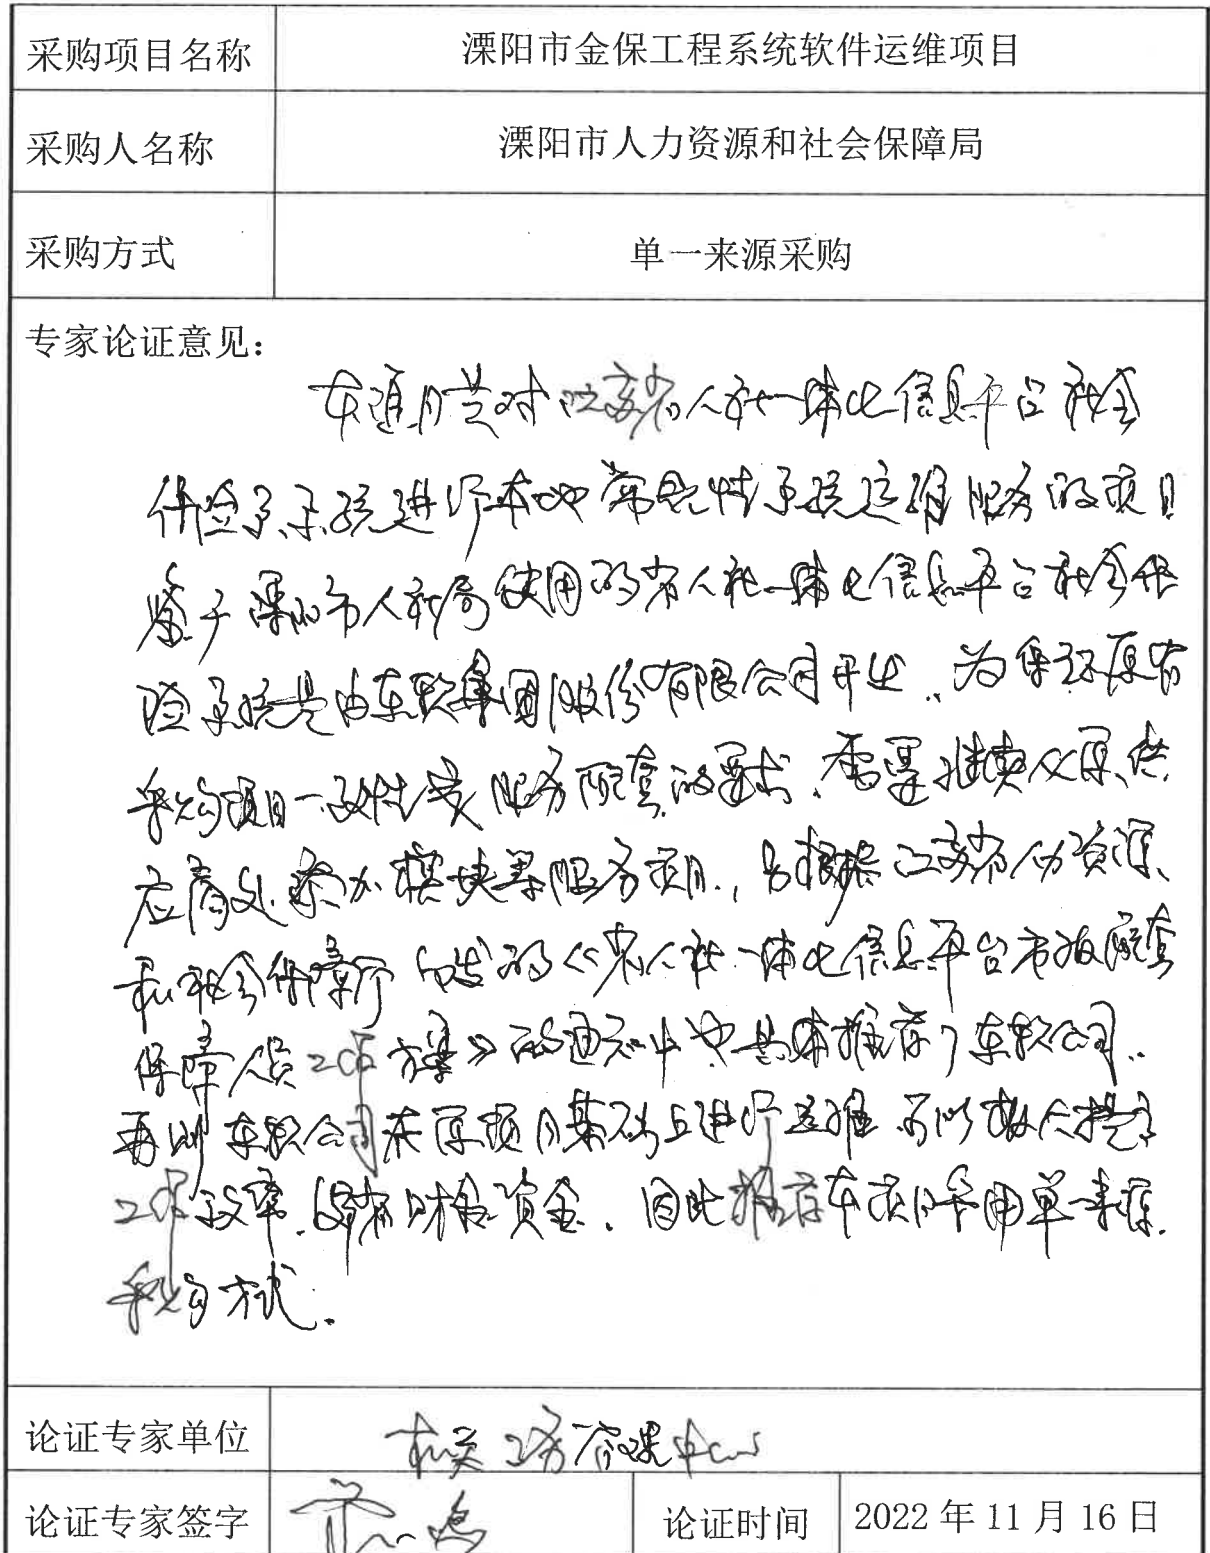 采购项目名称 溧阳市金保工程系统软件运维项目
采购人名称 溧阳市人力资源和社会保障局
采购方式 单一来源采购
专家论证意见：
本项目是对江苏省人社一体化信息平台社会
保险子系统进行本地常规性系统运维服务的项目
鉴于溧阳市人社局使用的省人社一体化信息平台社会保
险系统是由东软集团股份有限公司开发，为保证原有
采购项目一致性或服务配套的要求，需要继续从原供
应商处添加模块等服务项目，另根据江苏省人力资源
和社会保障厅印发的《省人社一体化信息平台市级配套
保障人员工作方案》的通知中也具体推荐了东软公司，
再则东软公司在原项目基础上进行运维可以极大提高
工作效率，节省财政资金，因此推荐本项目采用单一来源
采购方式。
论证专家单位 管理中心
论证专家签字 论证时间 2022年11月16日